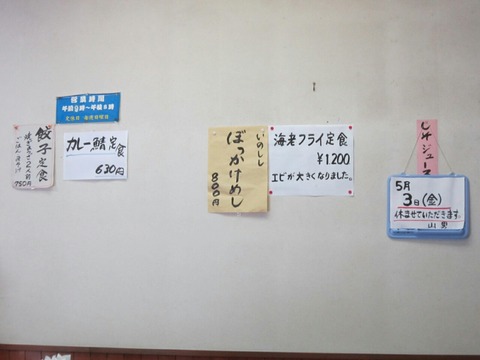 営業時間
餃子定食
750円
カレー鯖定食
630円
いのしし
ぼっかけめし
800円
海老フライ定食
¥1200
エビが大きくなりました。
しそジュース
5月
3日(金)
休ませていただきます。